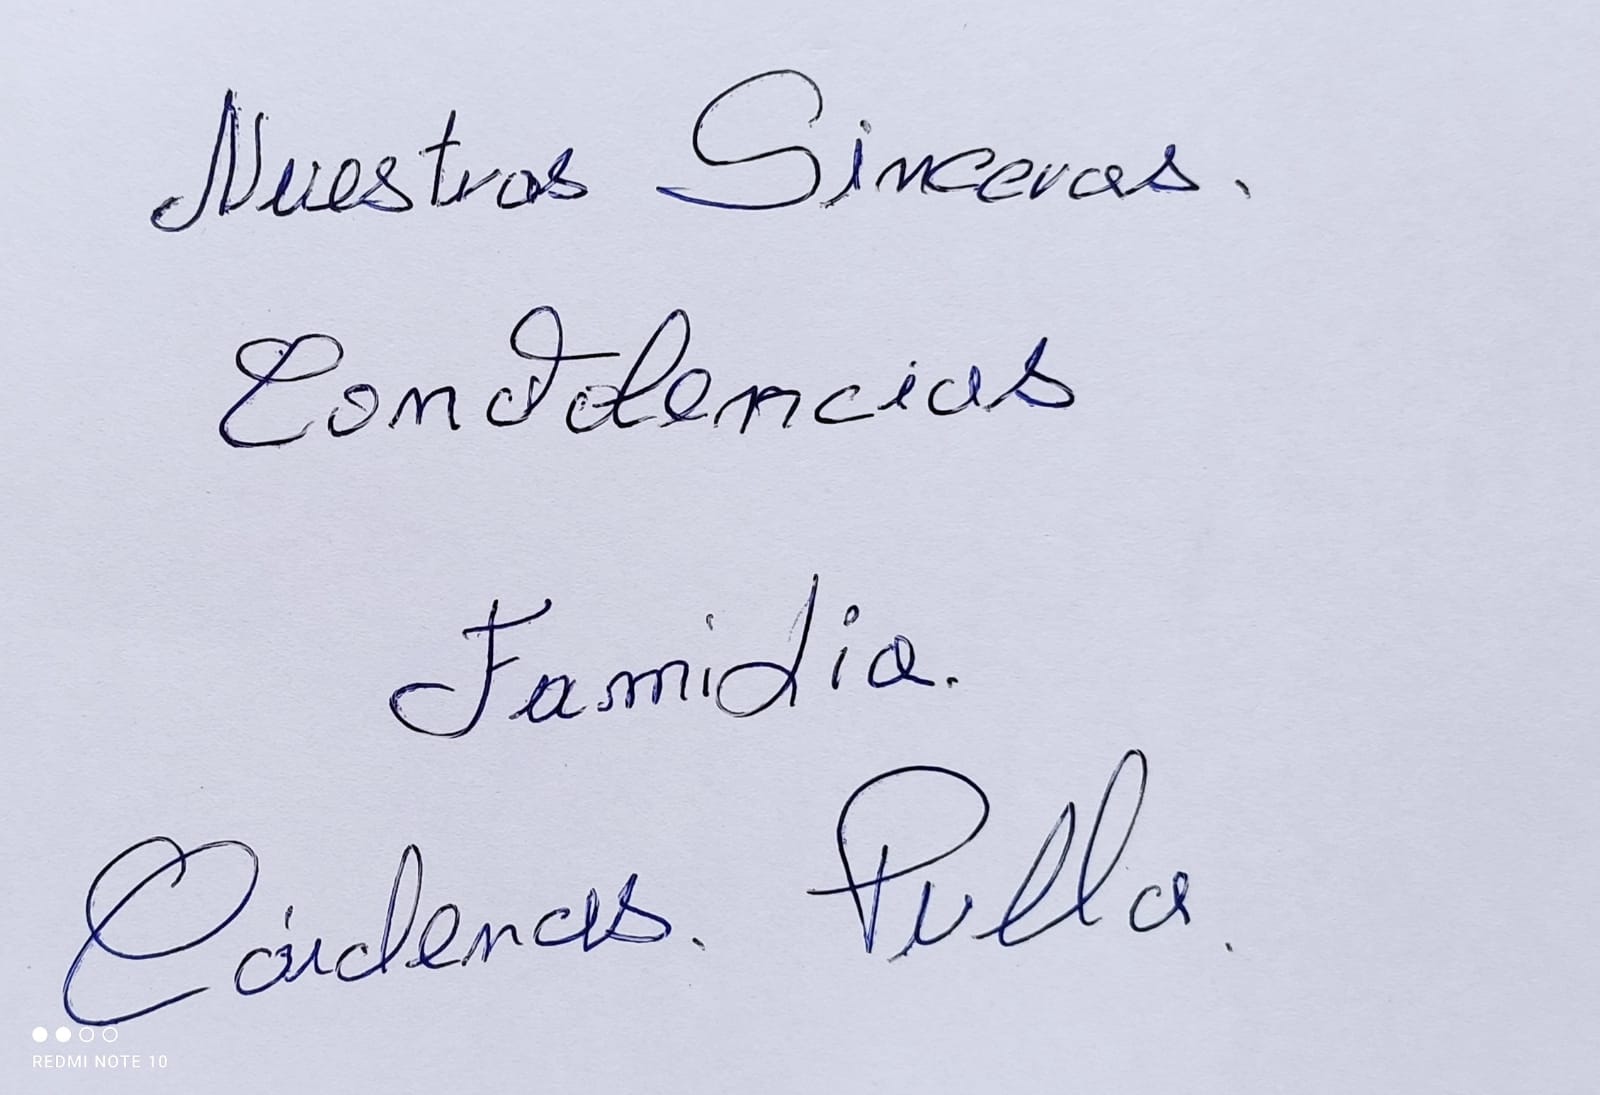 Nuestras Sinceras.
Condolencias
Familia.
Cárdenas. Pulla.
REDMI NOTE 10